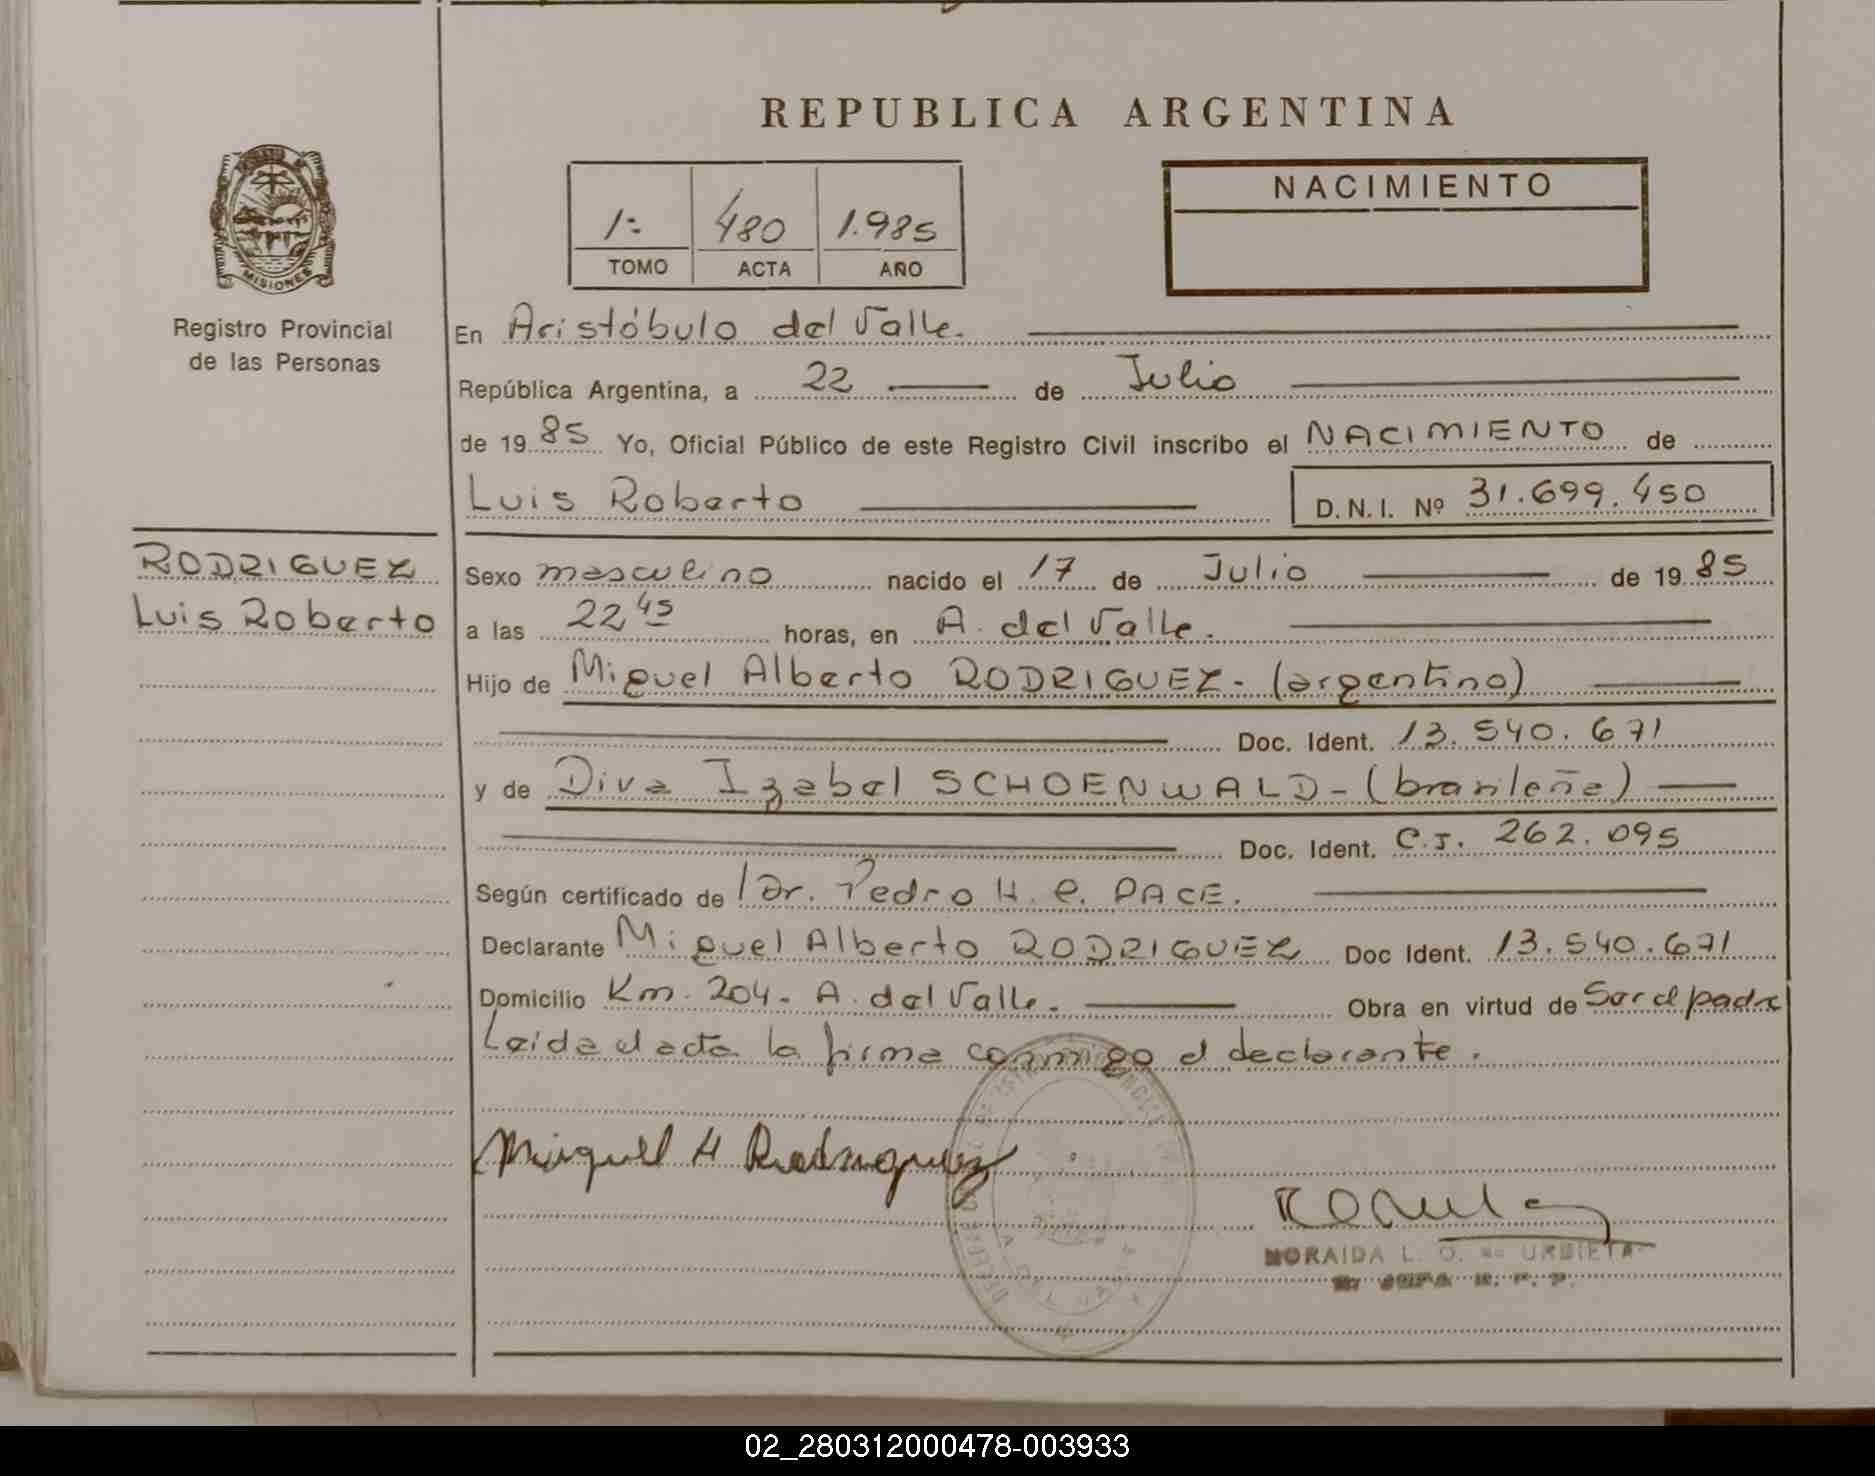 REPUBLICA ARGENTINA
MISIONES
Registro Provincial
de las Personas
1:- 480 1.985
TOMO ACTA AÑO
NACIMIENTO
En Aristóbulo del Valle.
República Argentina, a 22 de Julio
de 19 85 Yo, Oficial Público de este Registro Civil inscribo el NACIMIENTO de
Luis Roberto D.N.I. Nº 31.699.450
RODRIGUEZ
Luis Roberto
Sexo masculino nacido el 17 de Julio de 19 85
a las 22 45 horas, en A. del Valle.
Hijo de Miguel Alberto RODRIGUEZ - (argentino)
Doc. Ident. 13.540.671
y de Diva Izabel SCHOENWALD - (brasileña)
Doc. Ident. C.I. 262.095
Según certificado de Dr. Pedro H. C. PACE.
Declarante Miguel Alberto RODRIGUEZ Doc Ident. 13.540.671
Domicilio Km. 204. A. del Valle. Obra en virtud de Ser el padre
Leida el acta la firma conmigo el declarante.
Miguel A Rodriguez
NORAIDA L. O. de URBIETA
JEFA R. P. P.
02_280312000478-003933